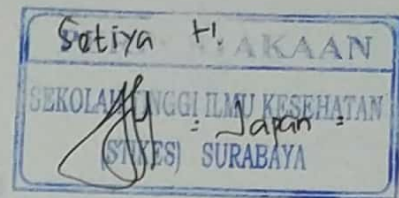 Setiya H. AKAAN
SEKOLAH TINGGI ILMU KESEHATAN
= Japan =
(STIKES) SURABAYA